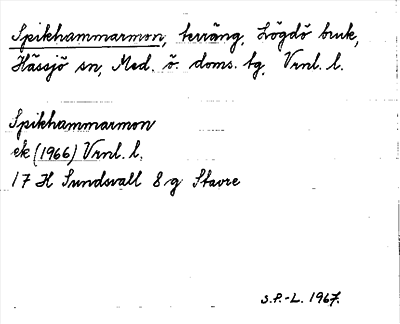 Spikhammarmon, terräng, Lögdö bruk,
Hässjö sn, Med. ö. doms. tg. Vrnl. l.
Spikhammarmon
ek (1966) Vrnl. l.
17 H Sundsvall 8 g Stavre
S.P.-L. 1967.